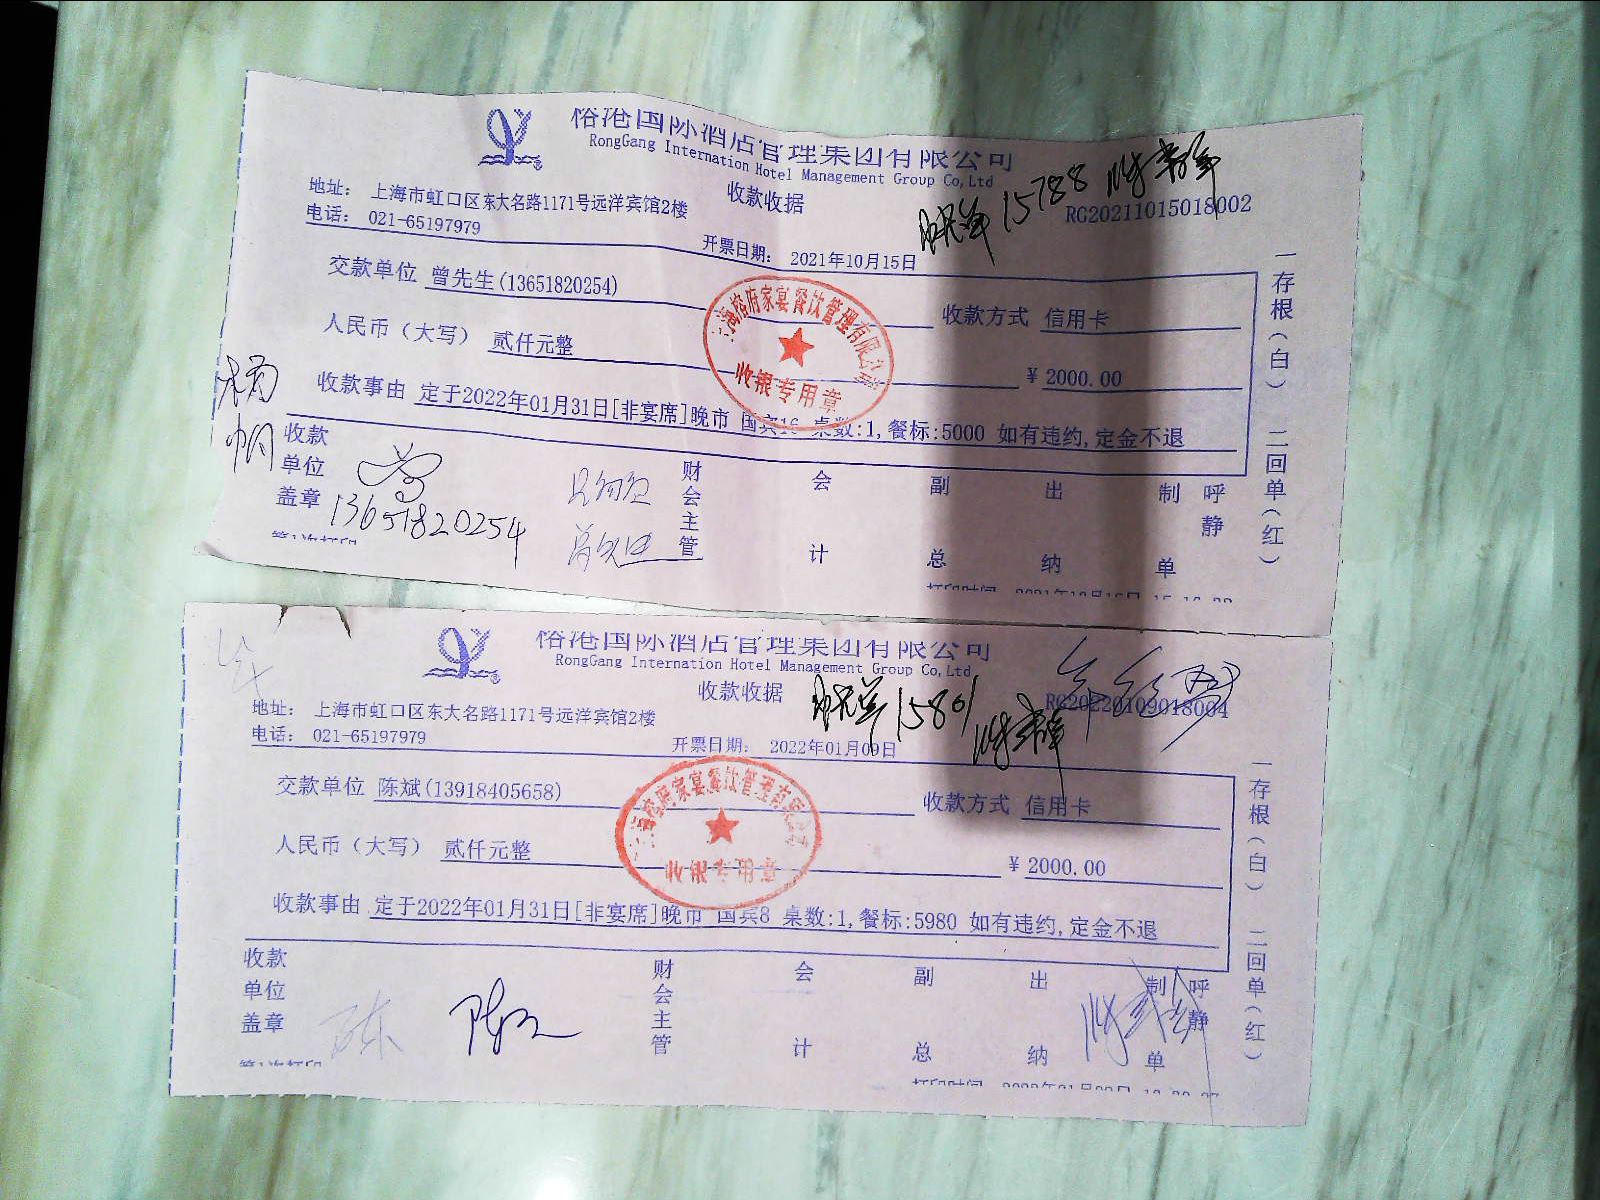 榕港国际酒店管理集团有限公司
RongGang Internation Hotel Management Group Co,Ltd
收款收据
15788
RG20211015018002
地址： 上海市虹口区东大名路1171号远洋宾馆2楼
电话： 021-65197979
开票日期： 2021年10月15日
交款单位 曾先生(13651820254)
收款方式 信用卡
人民币（大写） 贰仟元整
￥2000.00
收款事由 定于2022年01月31日[非宴席]晚市 国宾16 桌数:1,餐标:5000 如有违约,定金不退
上海榕府家宴餐饮管理有限公司
收银专用章
收款单位盖章
13651820254
财会主管
会计
副总
出纳
制单
呼静
一存根（白） 二回单（红）
第1次打印
榕港国际酒店管理集团有限公司
RongGang Internation Hotel Management Group Co,Ltd
收款收据
15801
RG20220109018004
地址： 上海市虹口区东大名路1171号远洋宾馆2楼
电话： 021-65197979
开票日期： 2022年01月09日
交款单位 陈斌(13918405658)
收款方式 信用卡
人民币（大写） 贰仟元整
￥2000.00
收款事由 定于2022年01月31日[非宴席]晚市 国宾8 桌数:1,餐标:5980 如有违约,定金不退
上海榕府家宴餐饮管理有限公司
收银专用章
收款单位盖章
财会主管
会计
副总
出纳
制单
呼静
一存根（白） 二回单（红）
第1次打印